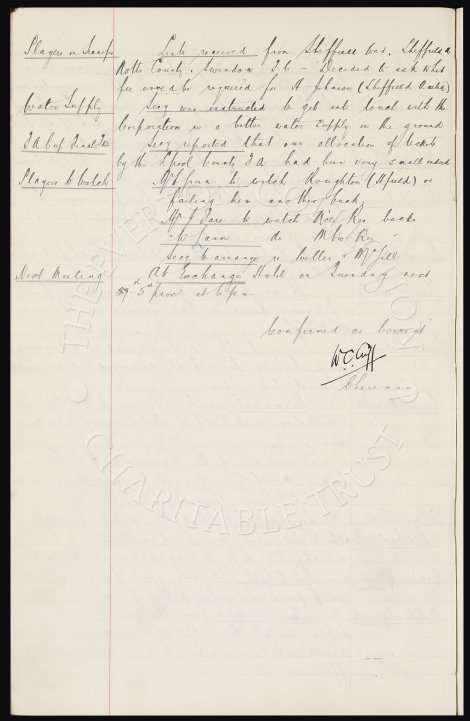 Players on Transfer Lists received from Sheffield Wed, Sheffield U
Notts County, Swindon T. &c - Decided to ask what
fee would be required for H Johnson (Sheffield Utd)
Water Supply Secy was instructed to get into touch with the
Corporation re a better water supply on the ground
F A Cup Final Tkts Secy reported that our allocation of tickets
by the Lpool County F A had been very small indeed
Players to Watch to watch Roughton (Hfield) or
failing him another back.
to watch Res backs
do Res
Secy to arrange re
Next Meeting At Exchange Hotel on Tuesday next
5th prox at 6 pm.
Confirmed as correct
W. C. Cuff
Chairman
THE EVERTON COLLECTION
CHARITABLE TRUST